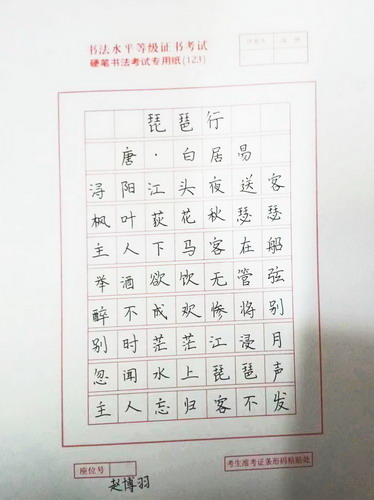 书法水平等级证书考试
硬笔书法考试专用纸(123)
琵琶行
唐·白居易
浔阳江头夜送客
枫叶荻花秋瑟瑟
主人下马客在船
举酒欲饮无管弦
醉不成欢惨将别
别时茫茫江浸月
忽闻水上琵琶声
主人忘归客不发
座位号
考生准考证条形码粘贴处
赵博羽